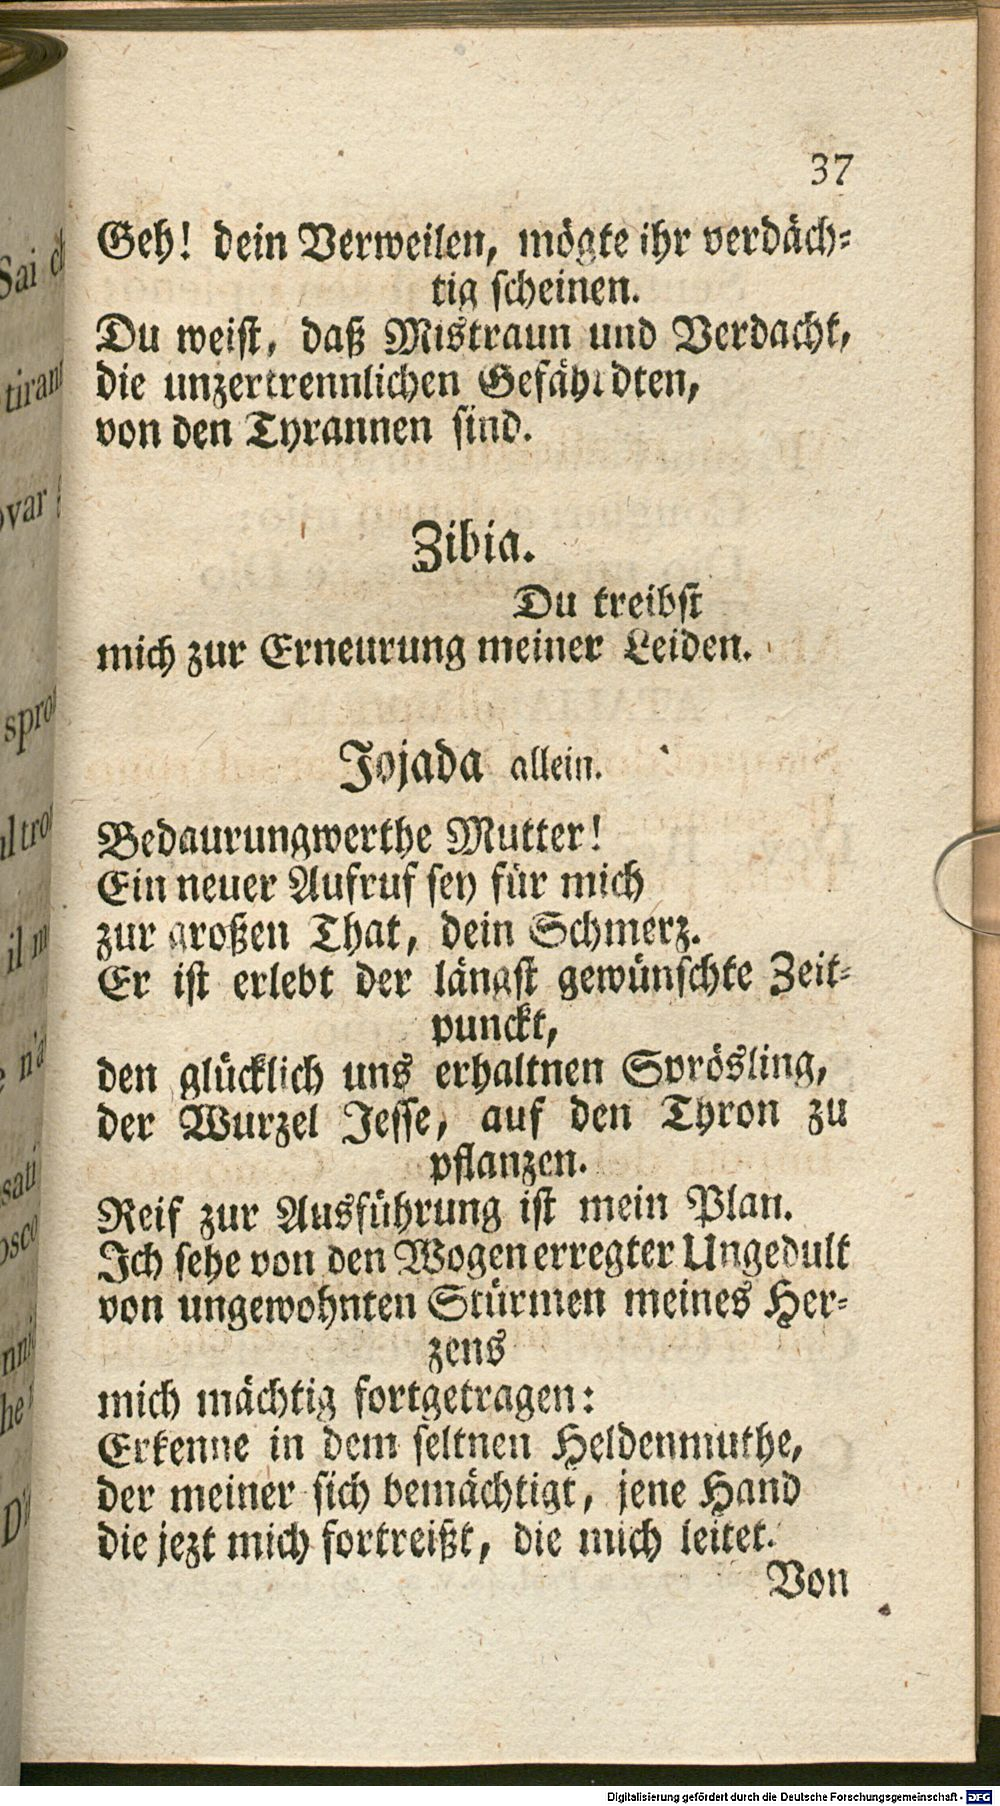 37
Geh! dein Verweilen, mögte ihr verdäch-
tig scheinen.
Du weist, daß Mistraun und Verdacht,
die unzertrennlichen Gefährdten,
von den Tyrannen sind.
Zibia.
Du treibst
mich zur Erneurung meiner Leiden.
Jojada allein.
Bedaurungwerthe Mutter!
Ein neuer Aufruf sey für mich
zur großen That, dein Schmerz.
Er ist erlebt der längst gewünschte Zeit-
punckt,
den glücklich uns erhaltnen Sprösling,
der Wurzel Jesse, auf den Thron zu
pflanzen.
Reif zur Ausführung ist mein Plan.
Ich sehe von den Wogen erregter Ungedult
von ungewohnten Stürmen meines Her-
zens
mich mächtig fortgetragen:
Erkenne in dem seltnen Heldenmuthe,
der meiner sich bemächtigt, jene Hand
die jezt mich fortreißt, die mich leitet.
Von
Sai
tiran
ovar
spro
il
n'a
Digitalisierung gefördert durch die Deutsche Forschungsgemeinschaft - DFG